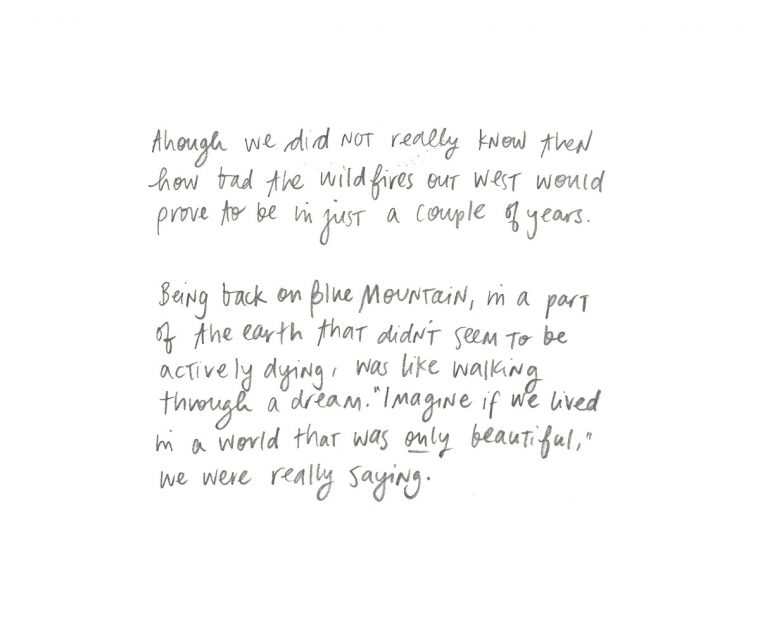 Ahough we did NOT really know then
how bad the wildfires out west would
prove to be in just a couple of years.
Being back on Blue Mountain, in a part
of the earth that didn't seem to be
actively dying, was like walking
through a dream. "Imagine if we lived
in a world that was only beautiful,"
we were really saying.